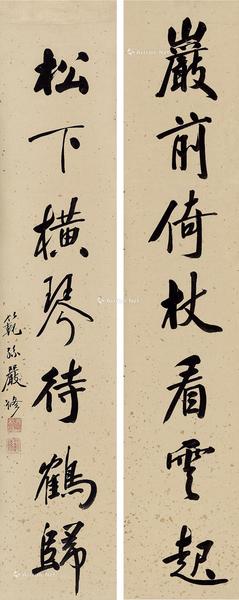 巖前倚杖看雲起
松下横琴待鶴歸
範孫嚴修